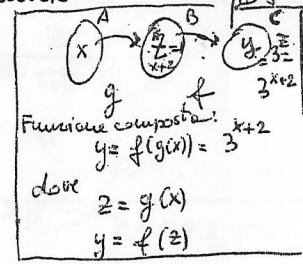 A B C
x z= y=3^z=
x+2 3^{x+2}
g f
Funzione composta:
y = f(g(x)) = 3^{x+2}
dove
z = g(x)
y = f(z)